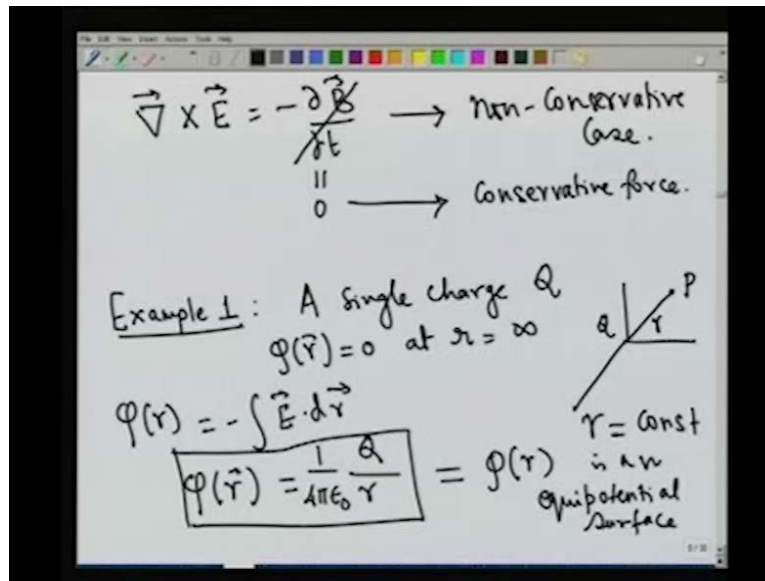 File Edit View Insert Actions Tools Help
∇⃗ × E⃗ = - ∂B⃗/∂t → non-Conservative Case.
||
0 → Conservative force.
Example 1 : A single charge Q
φ(r⃗) = 0 at r = ∞
Q r P
φ(r) = - ∫ E⃗ · dr⃗
φ(r⃗) = 1/4πε₀ Q/r = φ(r)
r = const
is an
equipotential
surface